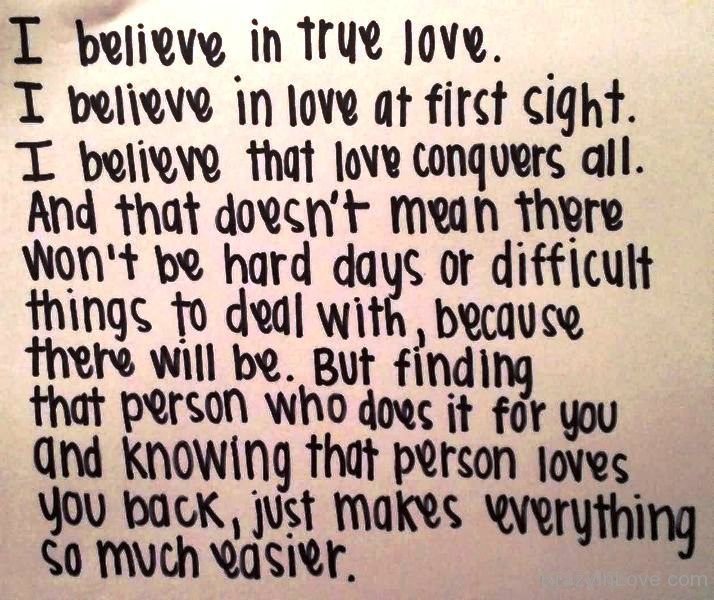 I believe in true love.
I believe in love at first sight.
I believe that love conquers all.
And that doesn't mean there
won't be hard days or difficult
things to deal with, because
there will be. But finding
that person who does it for you
and knowing that person loves
you back, just makes everything
so much easier.
KrazyInLove.com